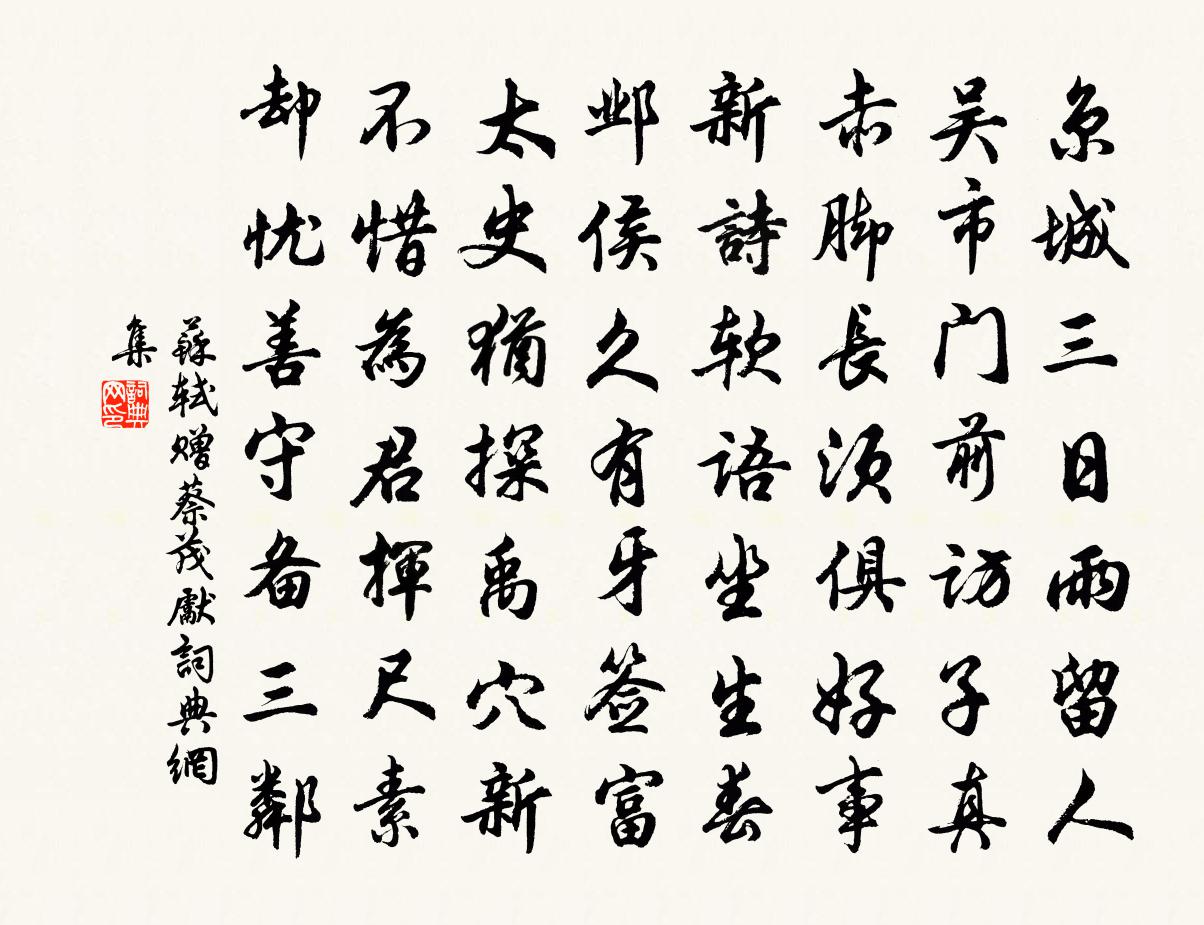 京城三日雨留人
吴市门前访子真
赤脚長须俱好事
新詩软语坐生春
邺侯久有牙签富
太史猶探禹穴新
不惜為君揮尺素
却忧善守备三鄰
蘇轼赠蔡茂獻詞典網
集
詞典网印